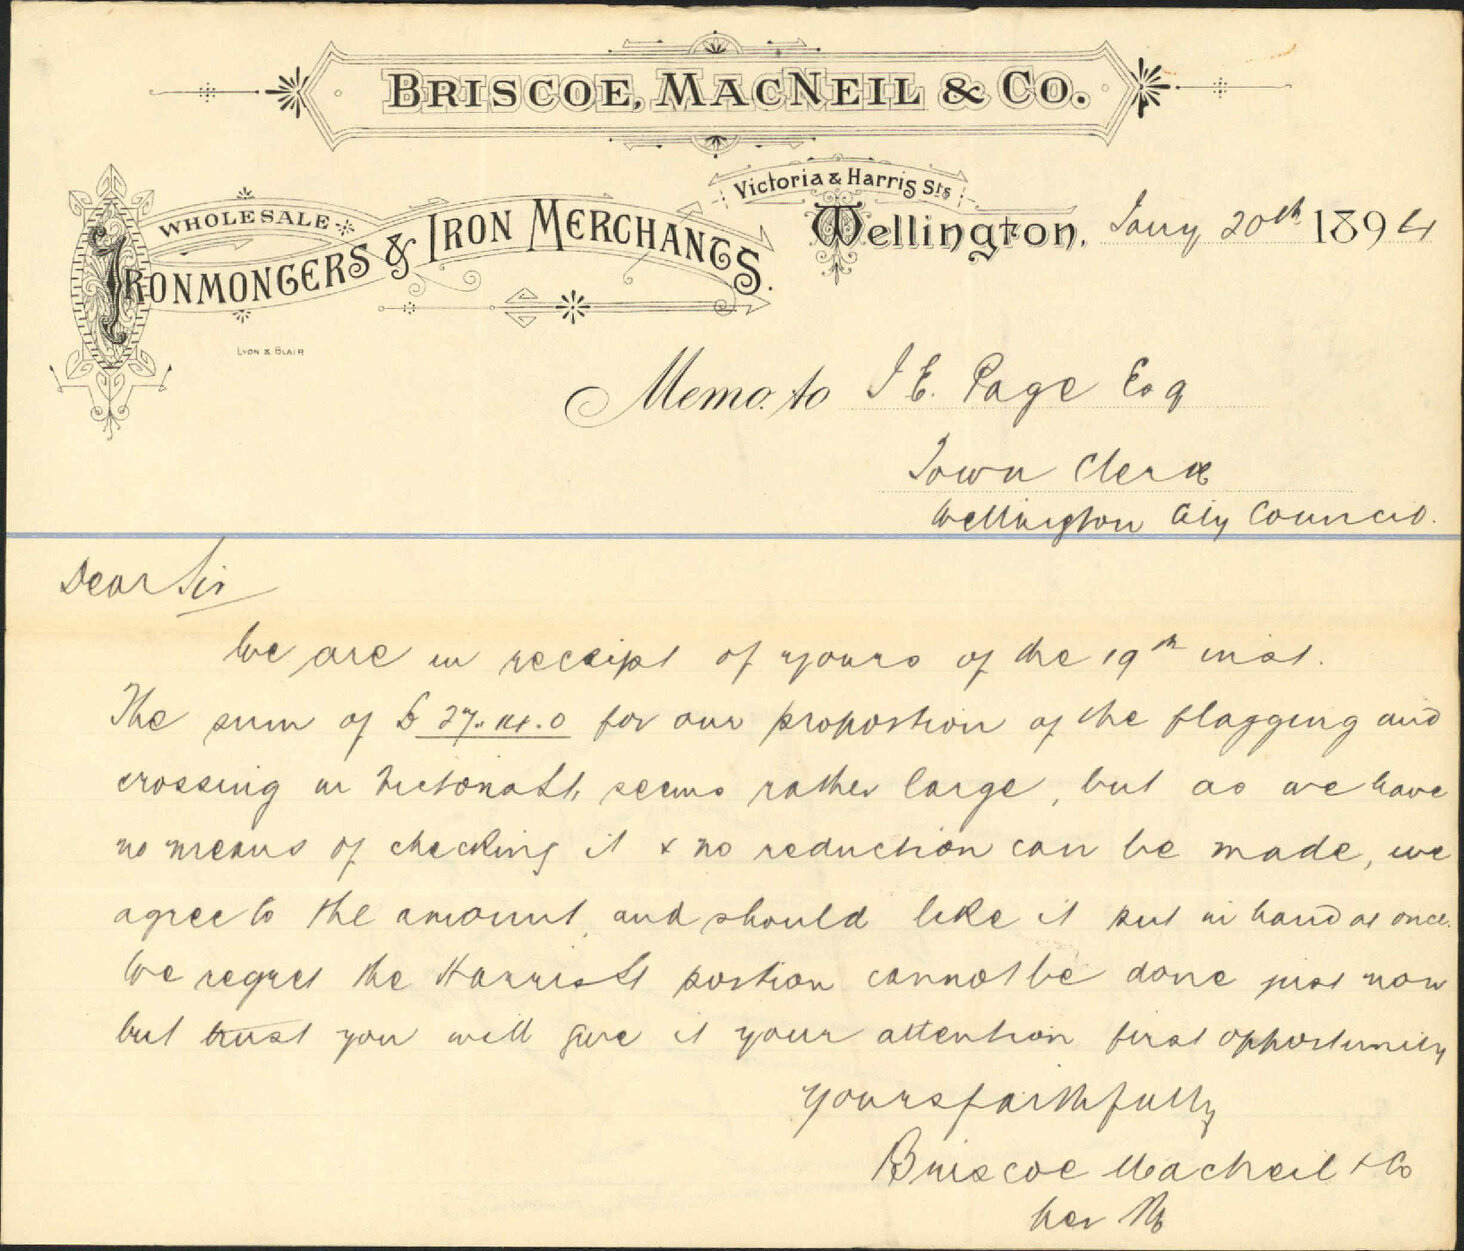 BRISCOE, MACNEIL & CO.
WHOLESALE
IRONMONGERS & IRON MERCHANTS.
Victoria & Harris Sts
Wellington, Jany 20th 1894
LYON & BLAIR
Memo. to J E. Page Esq
Town Clerk
Wellington City Council.
Dear Sir
We are in receipt of yours of the 19th inst.
The sum of £ 27.. 14. 0 for our proportion of the flagging and
crossing in Victoria St, seems rather large, but as we have
no means of checking it & no reduction can be made, we
agree to the amount, and should like it put in hand at once.
We regret the Harris St portion cannot be done just now
but trust you will give it your attention first opportunity
Yours faithfully
Briscoe MacNeil & Co
per